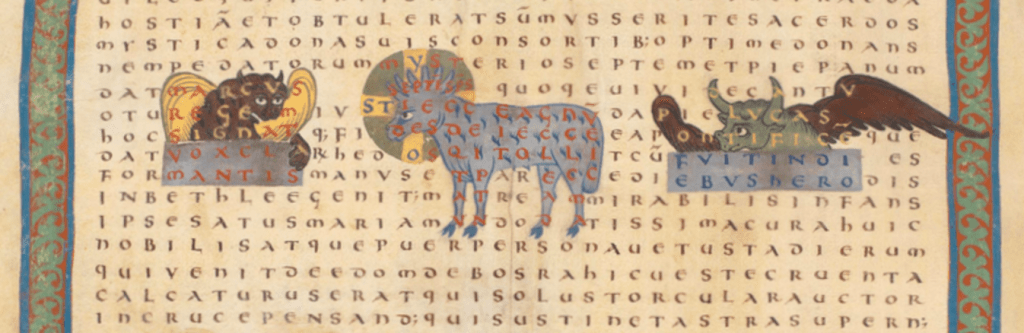 HOSTIAETOBTULERATSŪMVSSERITESACERDOS
MYSTICADONASUISCONSORTIB;OPTIMEDONANS
NEMPEDATORUMMYSTERIOSEPTEMETPIEPANUM
DAT MARCVS VIECANTV
RE SE M IV ST LEGE DAP E LVCAST
SIGNAT PON FICE QUE
DAT VOXCL RHED FVITINDI ES
FORMANTIS MANVSE TPARE EDI EBVSHERO DIS
INBETHLEEGENIT;M MIRABILISINFANS
IPSESATUSMARIA TISSIMACURAHUIC
NOBILISATQUEPUERPERSONAUETUSTADIERUM
QUIVENITDEEDOMDEBOSRAHICUESTECRUENTA
CALCATURUSERATQUISOLUSTORCULARAUCTOR
INCRUCEPENSAND;QUISUSTINETASTRASUPERN;